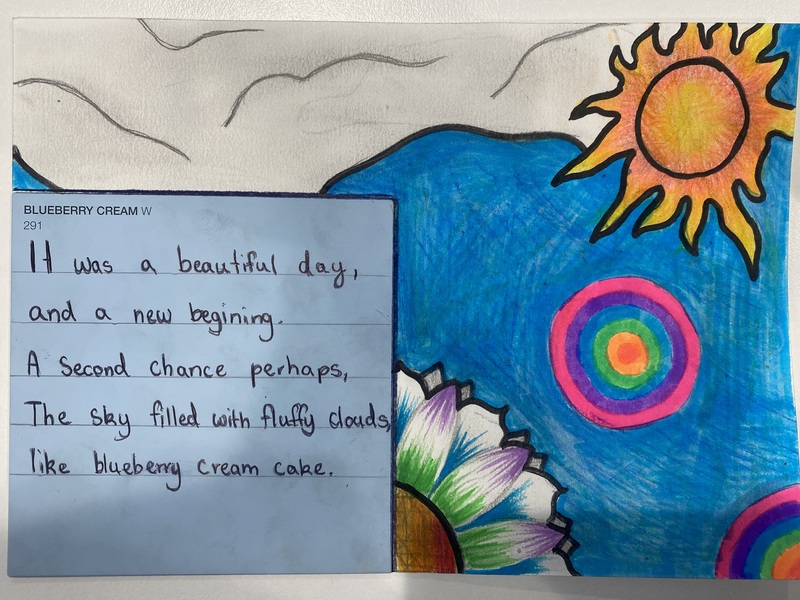 BLUEBERRY CREAM W
291
It was a beautiful day,
and a new begining.
A Second chance perhaps,
The sky filled with fluffy clouds,
like blueberry cream cake.